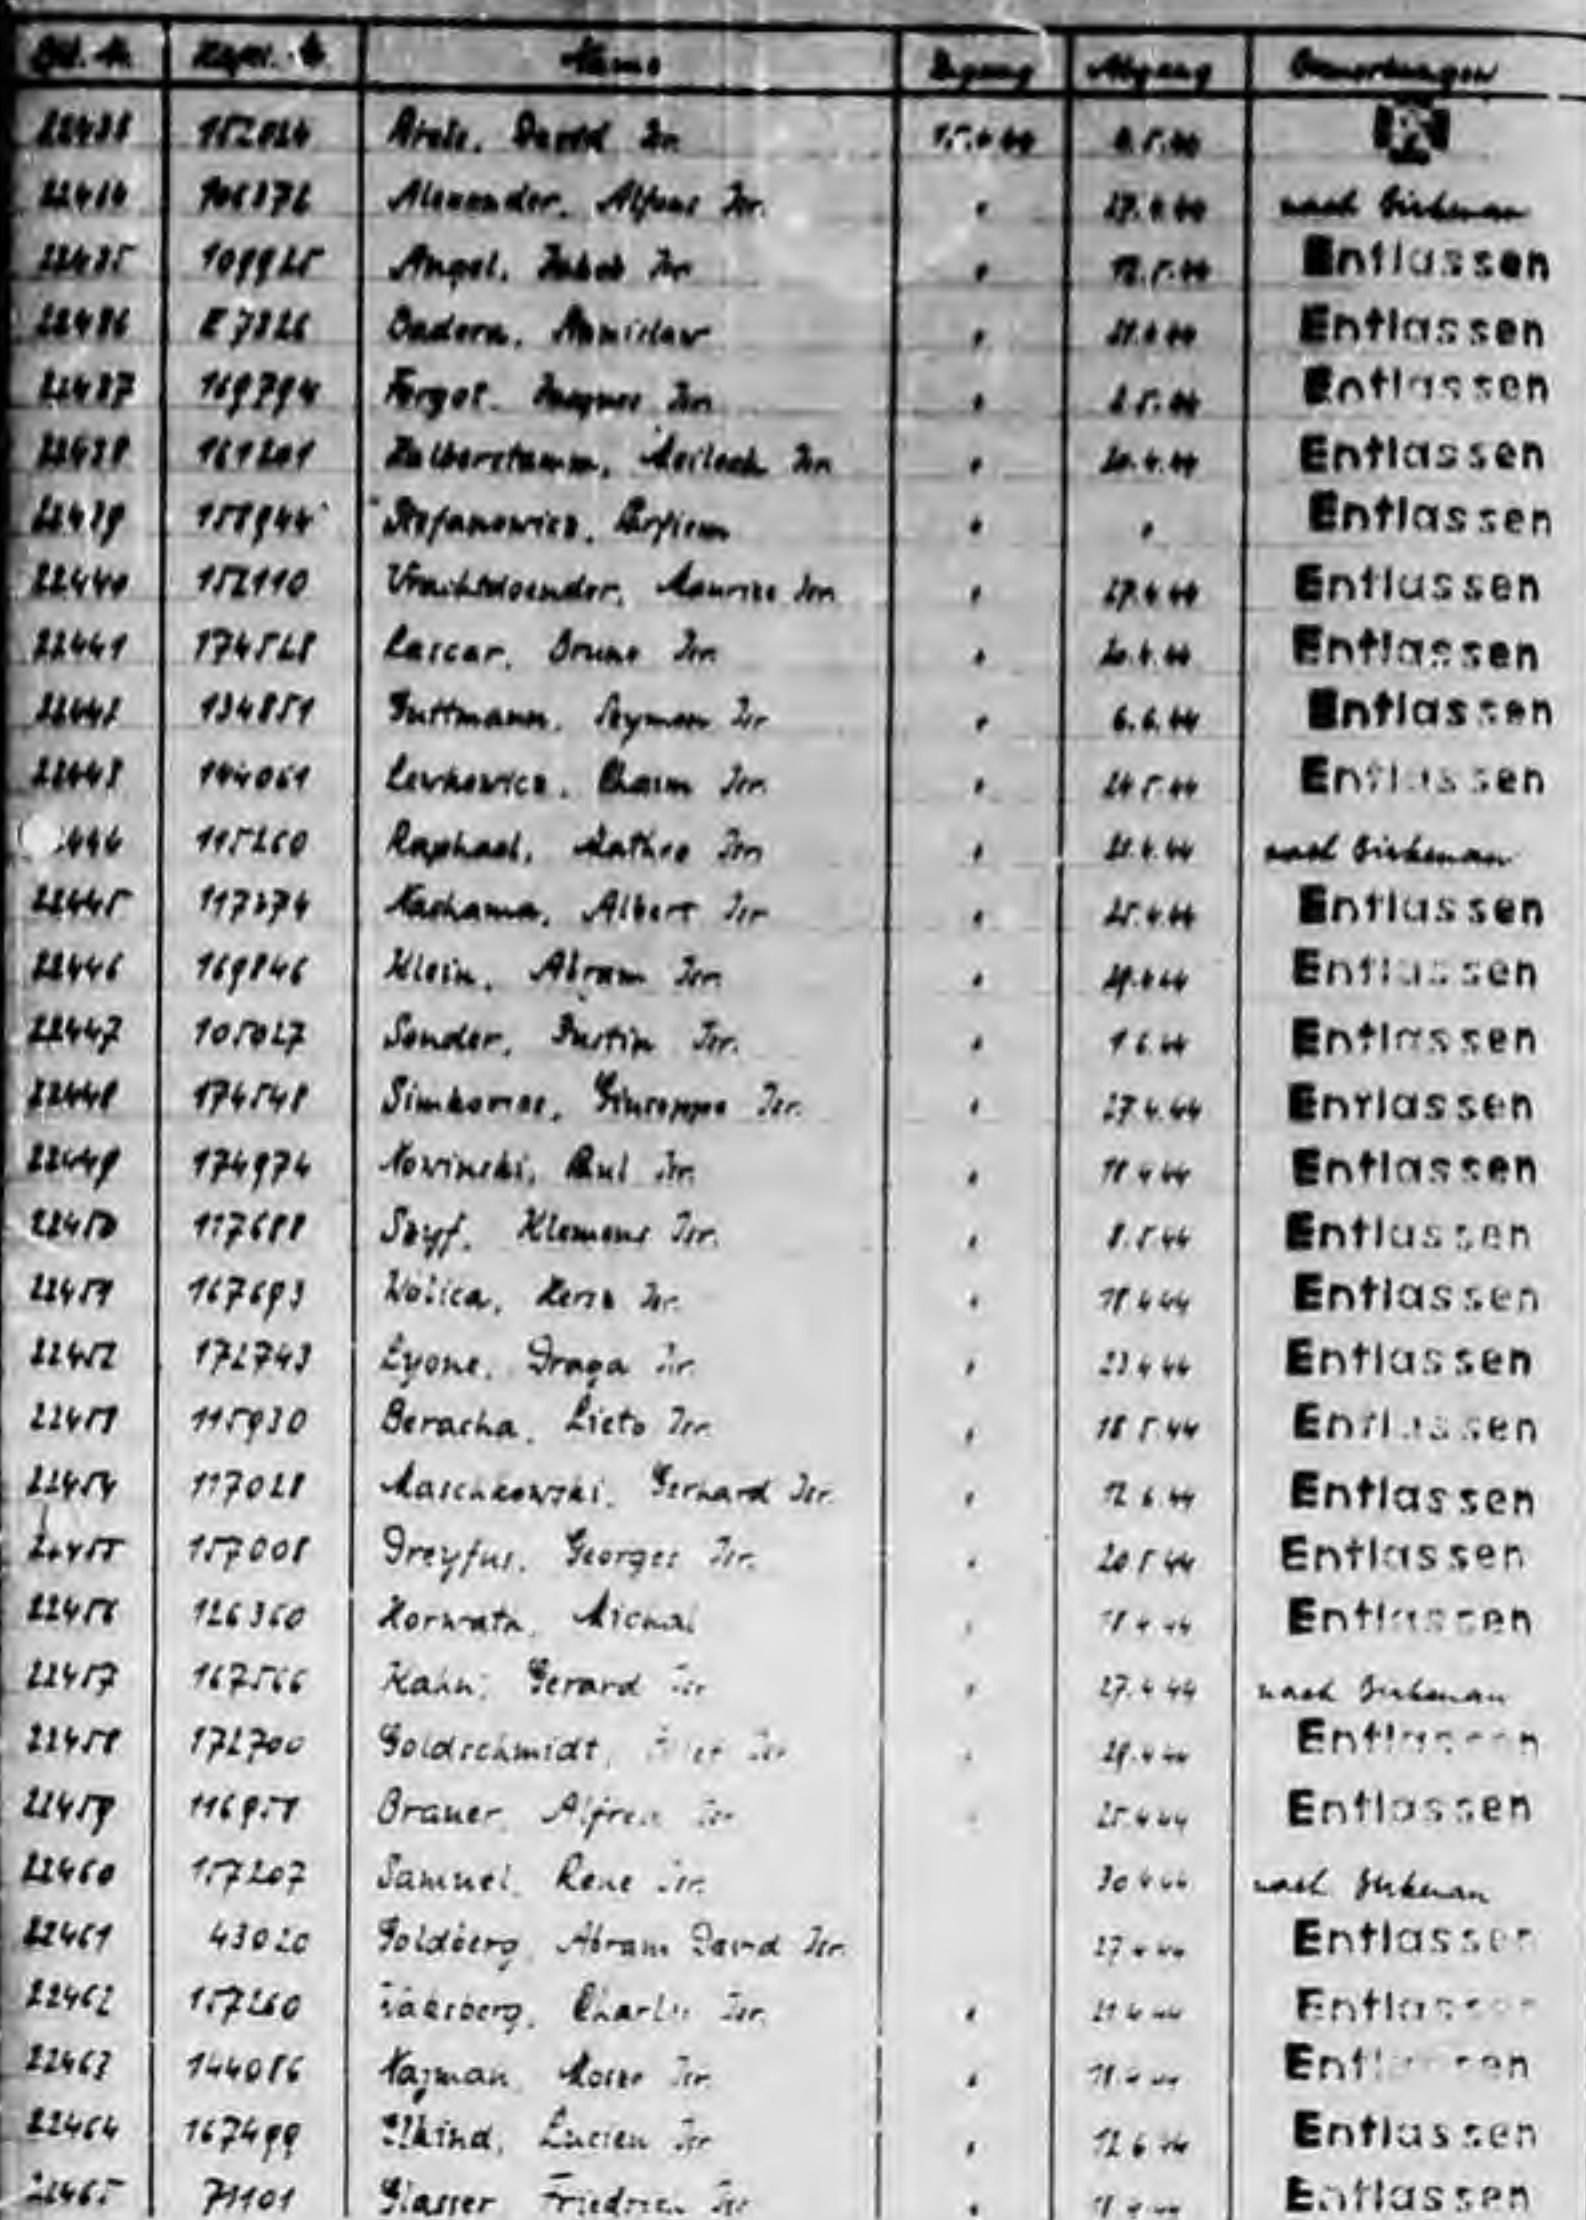 Name Zugang Abgang Bemerkungen
22433 152024 David Isr. 15.4.44
22434 Alexander, Alfons Isr. " 27.4.44 nach Birkenau
22435 109925 Angel, Jakob Isr. " 12.5.44 Entlassen
22436 " Entlassen
22437 169794 Isr. " Entlassen
22438 161201 Halberstamm, Meilech Isr. " 20.4.44 Entlassen
22439 Stefanowicz, " " Entlassen
22440 152110 Maurice Isr. " 27.4.44 Entlassen
22441 174528 Lascar, Bruno Isr. " 20.4.44 Entlassen
22442 134851 Guttmann, Szymon Isr. " 6.6.44 Entlassen
22443 144061 Lewkowicz, Chaim Isr. " 24.5.44 Entlassen
115260 Raphael, Matheo Isr. " nach Birkenau
22445 Nachama, Albert Isr. " 25.4.44 Entlassen
22446 169846 Klein, Abram Isr. " 29.4.44 Entlassen
22447 105027 Sonder, Justin Isr. " 1.6.44 Entlassen
22448 174548 Giuseppe Isr. " 27.4.44 Entlassen
22449 174974 Nowinski, Paul Isr. " 18.4.44 Entlassen
22450 117688 Szyf, Klemens Isr. " 8.5.44 Entlassen
22451 167693 Wolica, Hersz Isr. " 18.4.44 Entlassen
22452 172743 Lyone, Draga Isr. " 23.4.44 Entlassen
22453 115930 Beracha, Lieto Isr. " 18.5.44 Entlassen
22454 117028 Maschkowski, Gerhard Isr. " 12.6.44 Entlassen
22455 157008 Dreyfus, Georges Isr. " 20.5.44 Entlassen
22456 126360 Horwath, Michal " 18.4.44 Entlassen
22457 167566 Kahn, Gerard Isr. " 27.4.44 nach Birkenau
22458 172700 Goldschmidt, Isr. " 29.4.44 Entlassen
22459 116951 Brauer, Alfred Isr. " 25.4.44 Entlassen
22460 157207 Samuel, Rene Isr. 30.4.44 nach Birkenau
22461 43020 Goldberg, Abram David Isr. 27.4.44 Entlassen
22462 157260 Charles Isr. " 21.4.44 Entlassen
22463 144086 Najman, Isr. " 18.4.44 Entlassen
22464 167499 Elkind, Lucien Isr. " 12.6.44 Entlassen
22465 71101 Glasser, Friedrich Isr. " Entlassen